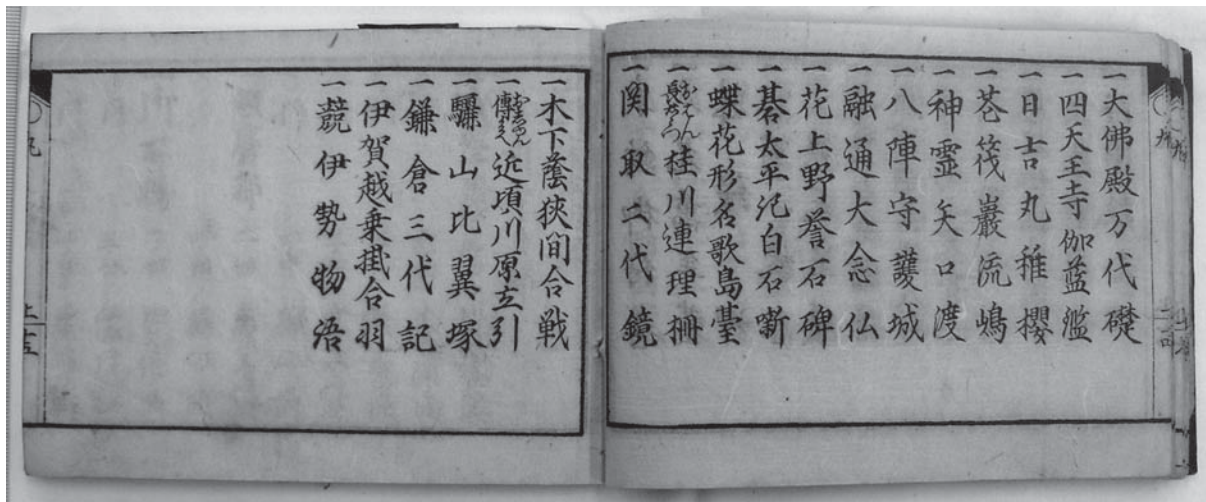 一大佛殿万代礎
一四天王寺伽藍濫
一日吉丸稚櫻
一花筏巌流嶋
一神霊矢口渡
一八陣守護城
一融通大念仏
一花上野誉石碑
一碁太平記白石噺
一蝶花形名歌島臺
一おはん 桂川連理柵
一関取二代鏡
一木下蔭狭間合戦
一近頃川原立引
一驪山比翼塚
一鎌倉三代記
一伊賀越乗掛合羽
一競伊勢物语
上ノ五